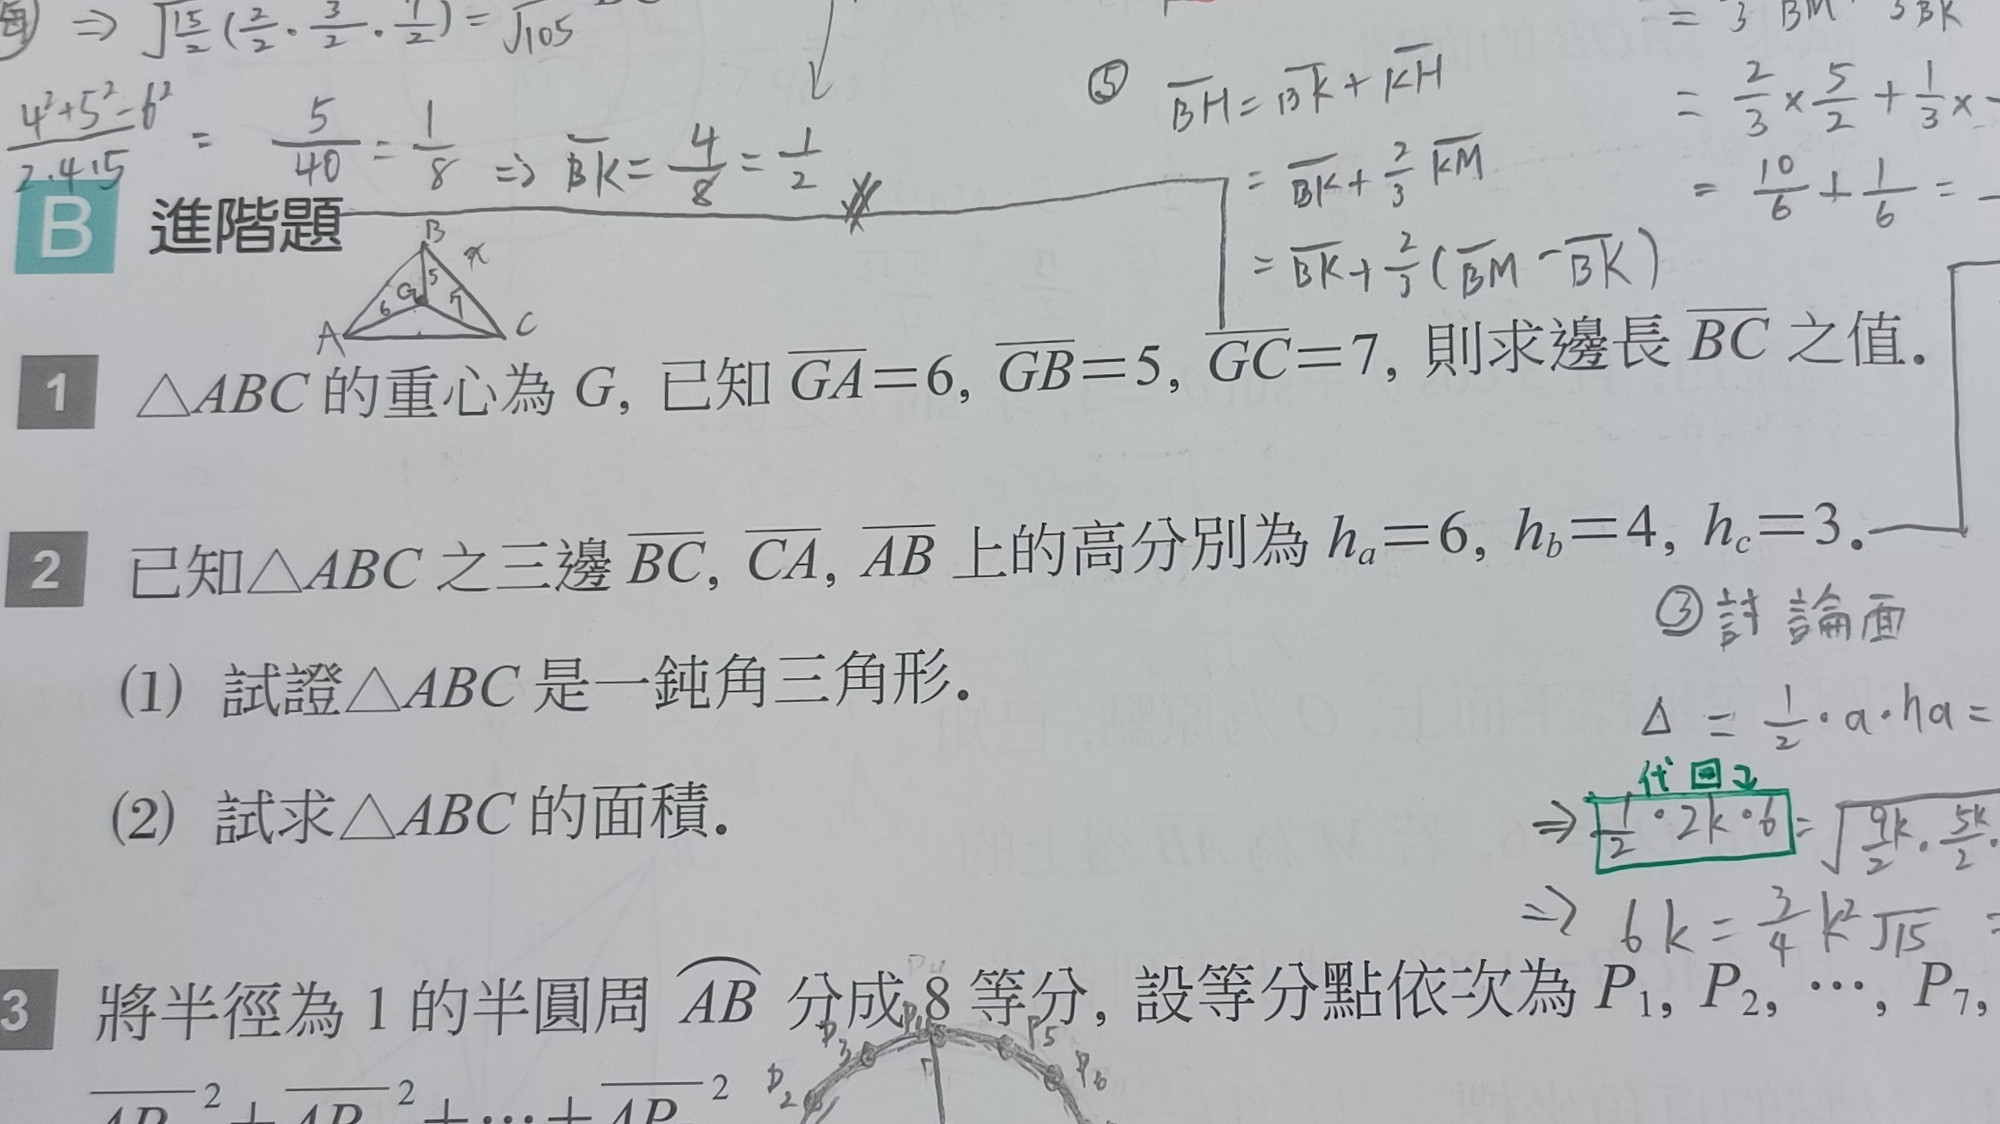 ⇒ √15/2(2/2·3/2·7/2) = √105
4²+5²-6²/2·4·5 = 5/40 = 1/8 ⇒ BK = 4/8 = 1/2
⑤ BH = BK + KH
= BK + 2/3 KM
= BK + 2/3(BM - BK)
= 3 BM · 3BK
= 2/3 × 5/2 + 1/3 ×
= 10/6 + 1/6 =
B 進階題
B x
G 6 5 7
A C
1 △ABC 的重心為 G, 已知 GA=6, GB=5, GC=7, 則求邊長 BC 之值.
2 已知△ABC 之三邊 BC, CA, AB 上的高分別為 hₐ=6, h_b=4, h_c=3.
③ 討論面
(1) 試證△ABC 是一鈍角三角形.
△ = 1/2·a·ha =
(2) 試求△ABC 的面積.
代回
⇒ 1/2·2k·6 = √9k/2·5k/2·
⇒ 6k = 3/4 k²√15 =
3 將半徑為 1 的半圓周 AB 分成 8 等分, 設等分點依次為 P₁, P₂, …, P₇,
P2 P3 P4 P5 P6
² + ² + … + ²